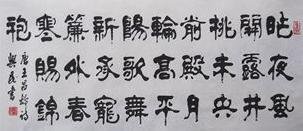 昨夜風
開露井
桃未央
前殿月
輪高平
陽歌舞
新承寵
簾外春
寒賜錦
袍
唐王昌齡詩
書